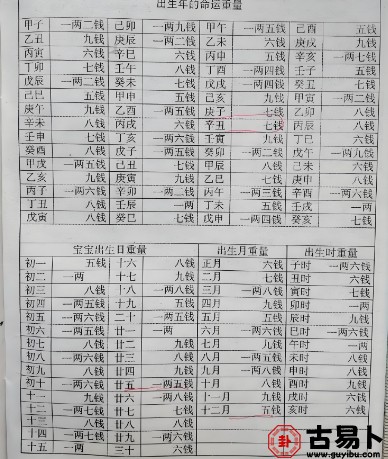 出生年的命运重量
甲子 一两二钱 己卯 一两九钱 甲午 一两五钱 己酉 五钱
乙丑 九钱 庚辰 一两二钱 乙未 六钱 庚戌 九钱
丙寅 六钱 辛巳 六钱 丙申 五钱 辛亥 一两七钱
丁卯 七钱 壬午 八钱 丁酉 一两四钱 壬子 五钱
戊辰 一两二钱 癸未 七钱 戊戌 一两四钱 癸丑 七钱
己巳 五钱 甲申 五钱 己亥 九钱 甲寅 一两二钱
庚午 九钱 乙酉 一两五钱 庚子 七钱 乙卯 八钱
辛未 八钱 丙戌 六钱 辛丑 七钱 丙辰 八钱
壬申 七钱 丁亥 一两六钱 壬寅 九钱 丁巳 六钱
癸酉 八钱 戊子 一两五钱 癸卯 一两二钱 戊午 一两九钱
甲戌 一两五钱 己丑 七钱 甲辰 八钱 己未 六钱
乙亥 九钱 庚寅 九钱 乙巳 七钱 庚申 八钱
丙子 一两六钱 辛卯 一两二钱 丙午 一两三钱 辛酉 一两六钱
丁丑 八钱 壬辰 一两 丁未 五钱 壬戌 一两
戊寅 八钱 癸巳 七钱 戊申 一两四钱 癸亥 七钱
宝宝出生日重量 出生月重量 出生时重量
初一 五钱 十六 八钱 正月 六钱 子时 一两六钱
初二 一两 十七 九钱 二月 七钱 丑时 六钱
初三 八钱 十八 一两八钱 三月 一两八钱 寅时 七钱
初四 一两五钱 十九 五钱 四月 九钱 卯时 一两
初五 一两六钱 二十 一两五钱 五月 五钱 辰时 九钱
初六 一两五钱 廿一 一两 六月 一两六钱 巳时 一两六钱
初七 八钱 廿二 九钱 七月 九钱 午时 一两
初八 一两六钱 廿三 八钱 八月 一两五钱 未时 八钱
初九 八钱 廿四 九钱 九月 一两八钱 申时 八钱
初十 一两六钱 廿五 一两五钱 十月 八钱 酉时 九钱
十一 九钱 廿六 一两八钱 十一月 九钱 戌时 六钱
十二 一两七钱 廿七 七钱 十二月 五钱 亥时 六钱
十三 八钱 廿八 八钱
十四 一两七钱 廿九 一两六钱
十五 一两 三十 六钱
卦
古易卜
www.guyibu.com